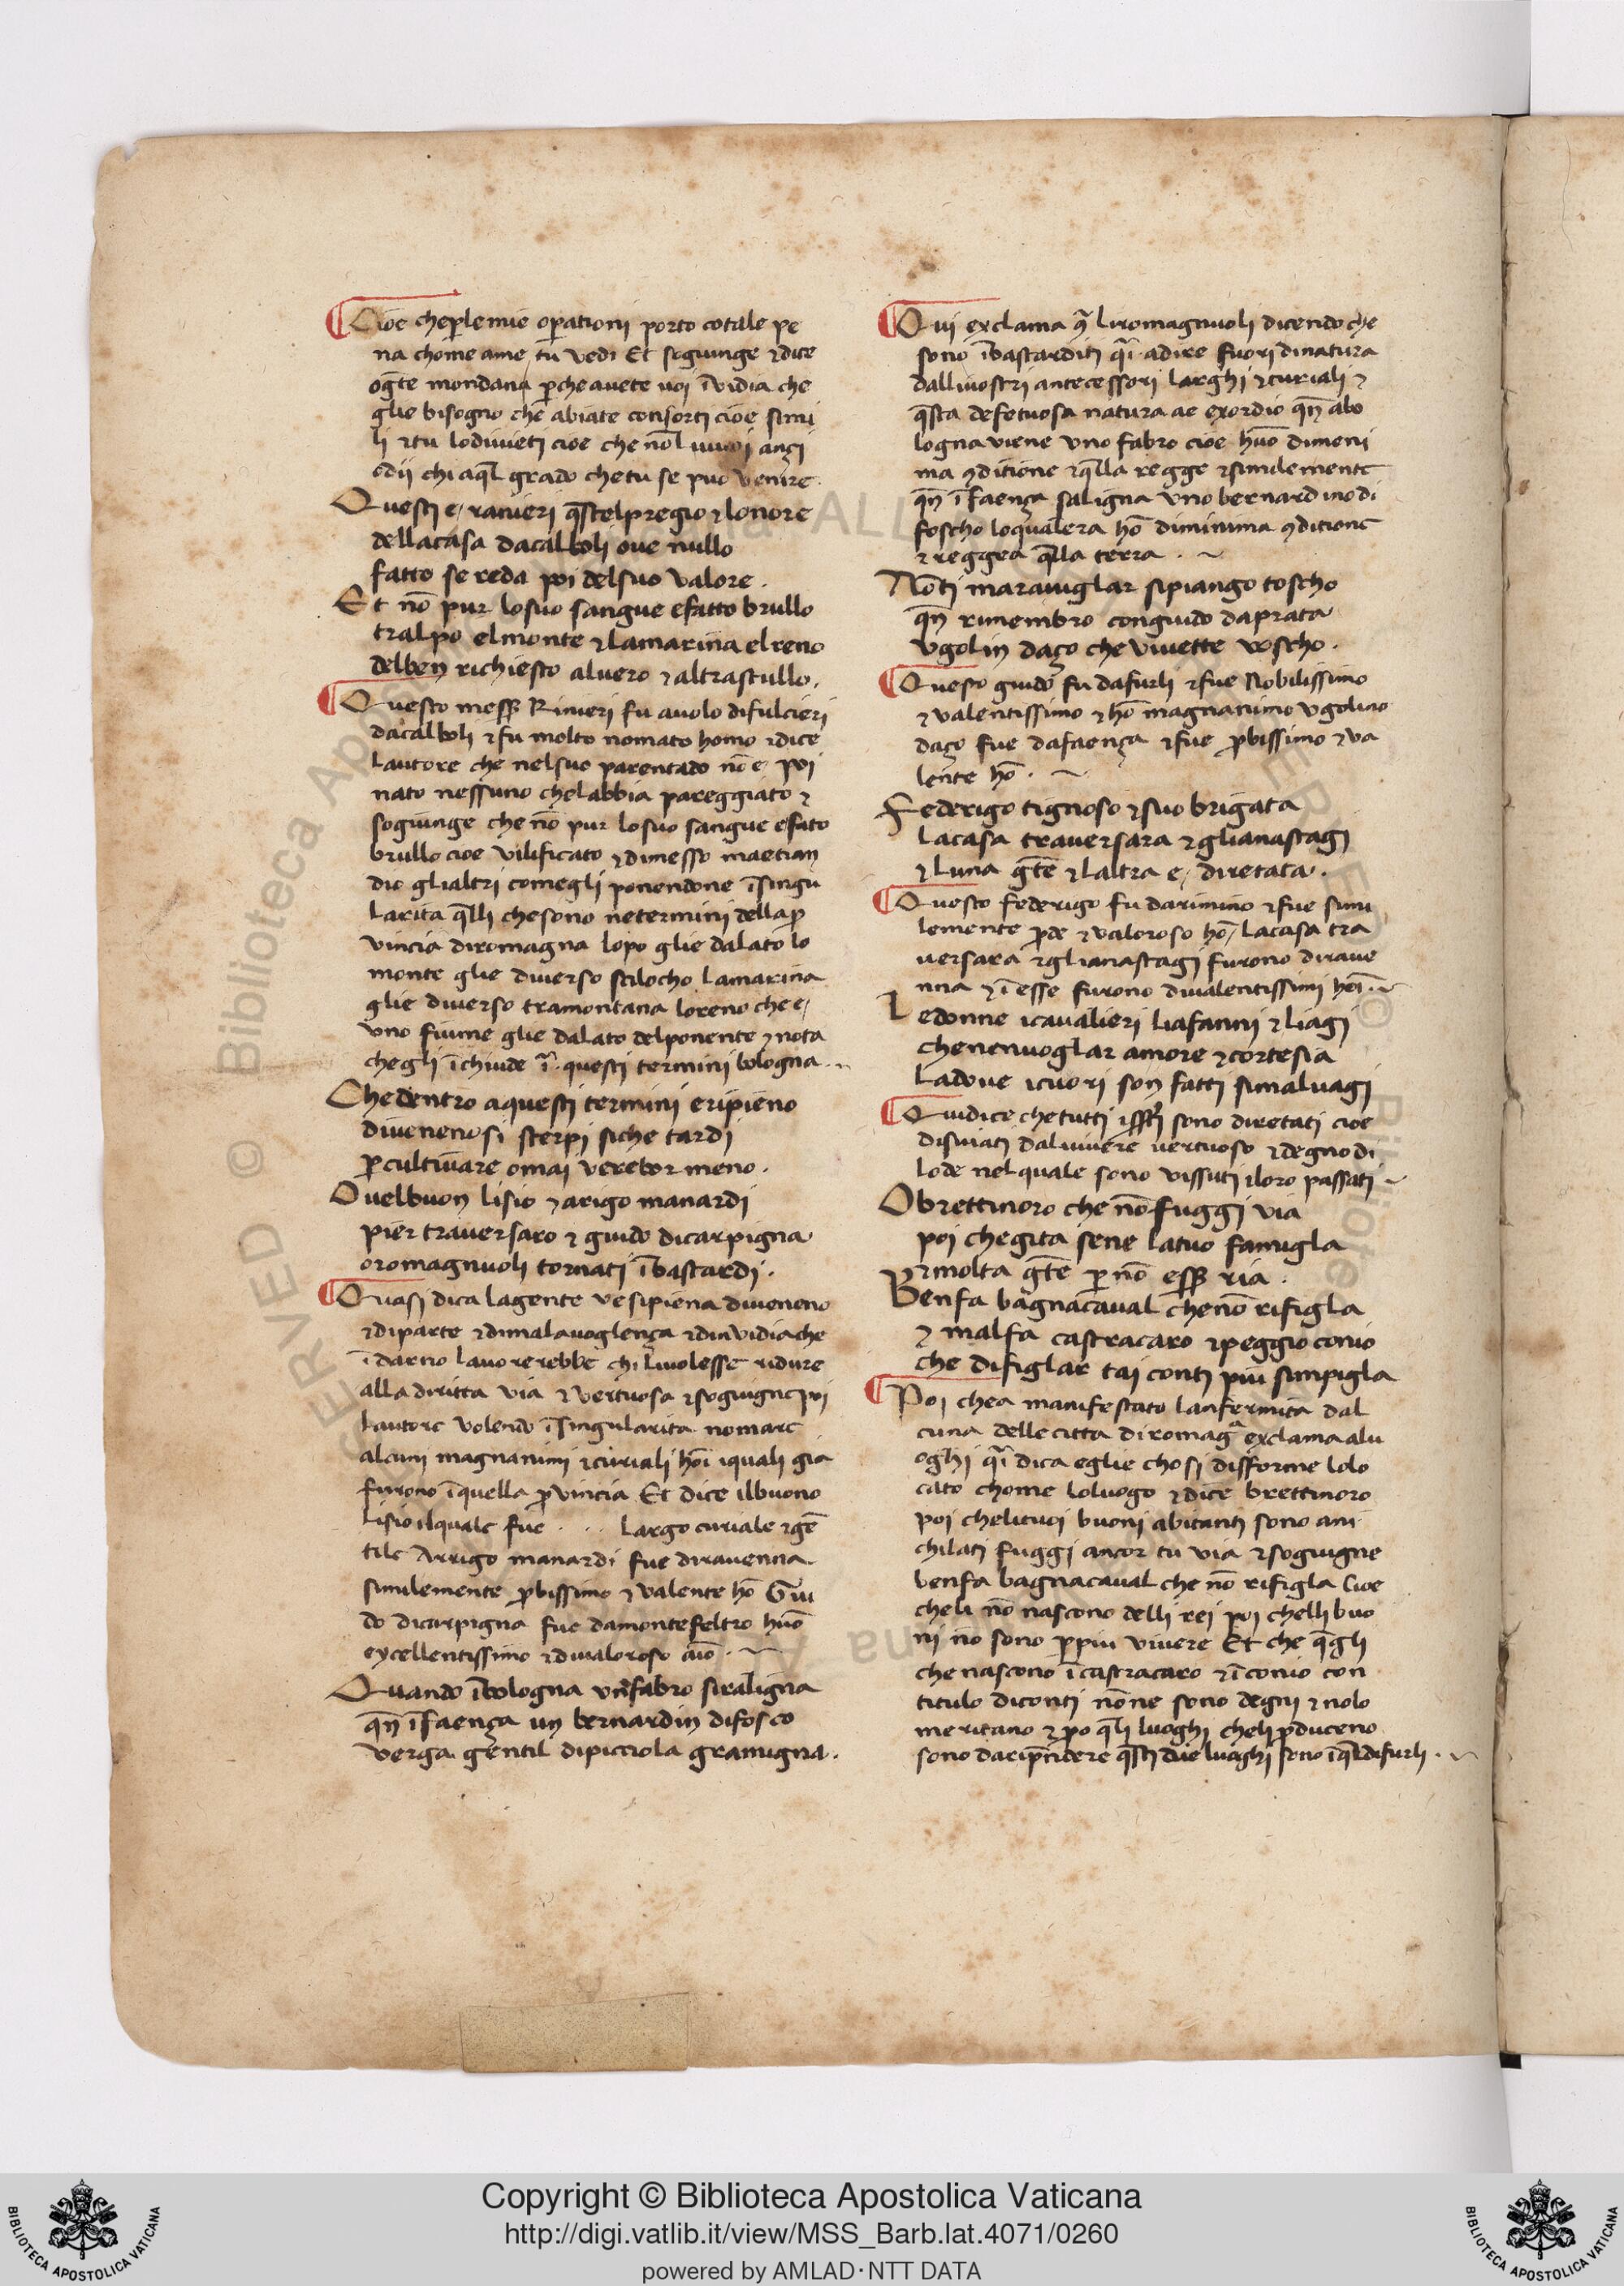 Cioe cheꝑlemie oꝑationi porto cotale pe
na chome ame tu vedi Et sogiunge ⁊dice
og̅te mondana ꝑcheavete uoi i̅vidia che
glie bisogno che abiate consorti cioe simi
li ⁊tu lodiuieti cioe che no̅l vuoi anzi
odii chi aq̅l grado chetu se puo venire
Questi e/ ranieri q̅stelpregio ⁊lonore
dellacasa dacalboli oue nullo
fatto se reda poi delsuo valore .
Et no̅ pur losuo sangue efatto brullo
tralpo elmonte ⁊lamarina elreno
delben richiesto aluero ⁊altrastullo .
Questo mess̅ Rinieri fu auolo difulcieri
dacalboli ⁊fu molto nomato homo ⁊dice
lautore che nelsuo parentado no̅ e poi
nato nessuno chelabbia pareggiato ⁊
sogiunge che no̅ pur losuo sangue efato
brullo cioe vilificato ⁊dimesso maetian
dio glialtri comegli ponendone i̅singu
larita q̅lli chesono netermini dellaꝓ
vincia diromagna lopo glie dalato lo
monte glie diverso scilocho lamarina
glie diverso tramontana loreno che e/
vno fiume glie dalato delponente ⁊nota
chegli i̅chiude i̅ questi termini bologna
Chedentro aquesti termini eripieno
diuenenosi sterpi siche tardi
ꝑcultiuare omai verebor meno .
Ouelbuon lisio ⁊arigo manardi
pier traversaro ⁊ guido dicarpigna
oromagnuoli tornati i̅bastardi .
Quasi dica lagente ve sipiena diueneno
⁊diparte ⁊dimalavoglenza ⁊dinvidiache
i̅darno lavorerebbe chi livolesse ridure
alladiritta via ⁊vertuosa ⁊soguigne poi
lautore volendo i̅singularita nomare
alcuni magnanimi ⁊curiali ho̅i iquali gia
furono i̅quella ꝓvincia Et dice ilbuono
Lisio ilquale fue . . . Largo curiale ⁊ge̅
tile Arrigo manardi fue diravenna
similemente ꝓbissimo ⁊ valente ho̅ Gui
do dicarpigna fue damontefeltro huo̅
excellentissimo ⁊divaloroso aı̅o .
Quando i̅bologna un fabro siraligna
qn̅ i̅faenza un bernardin difosco
verga gentil dipicciola gramigna .
Qui exclama ꝯ liromagnuoli dicendo che
sono i̅bastarditi q̅i adire fuori dinatura
dallivostri antecessori larghi ⁊curiali ⁊
q̅sta defetuosa natura ae exordio qn̅ abo
logna viene vno fabro cioe huo̅ dimeni
ma ꝯditione ⁊q̅lla regge ⁊similemente
qn̅ i̅faenza saligna vno bernardino di
foscho loqualera ho̅ diminima ꝯditione
⁊reggea q̅lla terra .
No̅ti maraviglar sipiango toscho
qn̅ rimembro conguido daprata
vgolin dazo che vivette voscho .
Questo guido fu dafurli ⁊fue Nobilissimo
⁊valentissimo ⁊ho̅ magnanimo vgolino
dazo fue dafaenza ⁊fue ꝓbissimo ⁊va
lente ho̅ .
Federigo tignoso ⁊suo brigata
lacasa traversara ⁊glianastagi
⁊luna g̅te ⁊laltra e/ diretata .
Questo federigo fu darimino ⁊fue simi
lemente ꝓde ⁊valoroso ho̅/ lacasa tra
versara ⁊glianastagi furono dirave
nna ⁊i̅ esse furono divalentissimi ho̅i .
Ledonne icavalieri liafanni ⁊liagi
chenenvoglar amore ⁊cortesia
ladove icuori son fatti simalvagi
Quidice chetutti iss̅ti sono diretati cioe
disviati dalvivere vertuoso ⁊degnodi
lode nelquale sono vissuti iloro passati
Obrettinoro che no̅fuggi via
poi chegita sene latuo famigla
⁊molta g̅te ꝑ no̅ ess̅ ria .
Benfa bagnacaval cheno̅ rifigla
⁊ malfa castracaro ⁊peggio conio
che difiglar tai conti piu simpigla
Poi chea manifestato lanfermita dal
cuna delle citta diromag̅a exclama alu
oghi q̅i dica eglie chosi disforme lolo
cato chome loluogo ⁊dice brettinoro
poi chelituoi buoni abitanti sono ani
chilati fuggi ancor tu via ⁊soguigne
benfa bagnacaval che no̅ rifigla Cioe
cheli no̅ nascono delli rei poi chelli buo
ni no̅ sono ꝑpiu vivere Et che q̅gli
che nascono i̅castracaro ⁊i̅conio con
titulo diconti no̅ne sono degni ⁊nolo
meritano ⁊ꝑo q̅li luoghi cheli ꝓduceno
sono daripn̅dere q̅sti due luoghi sono i̅q̅ldifurli .
© Biblioteca Apostolica Vaticana
Copyright © Biblioteca Apostolica Vaticana
http://digi.vatlib.it/view/MSS_Barb.lat.4071/0260
powered by AMLAD·NTT DATA
BIBLIOTECA APOSTOLICA VATICANA
BIBLIOTECA APOSTOLICA VATICANA